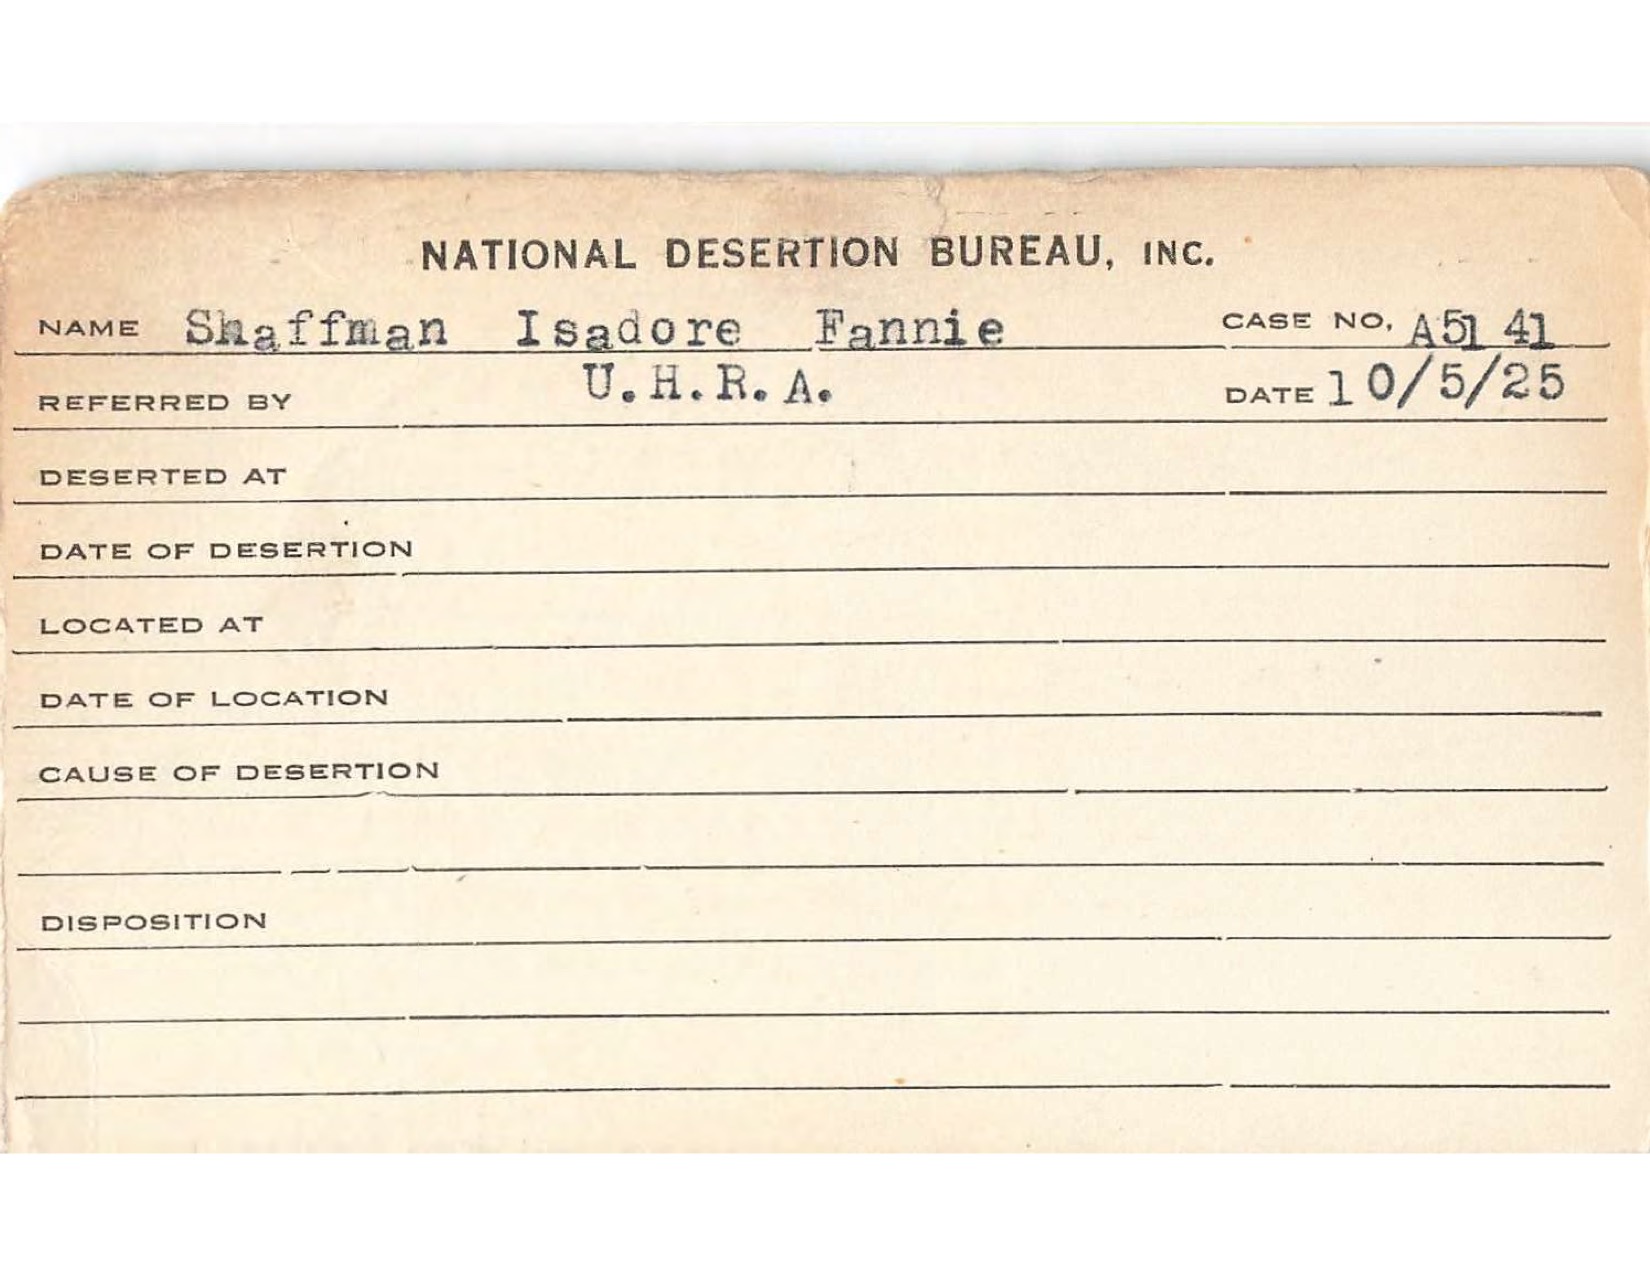 NATIONAL DESERTION BUREAU, INC.
NAME Shaffman Isadore Fannie CASE NO. A5141
REFERRED BY U.H.R.A. DATE 10/5/25
DESERTED AT
DATE OF DESERTION
LOCATED AT
DATE OF LOCATION
CAUSE OF DESERTION
DISPOSITION